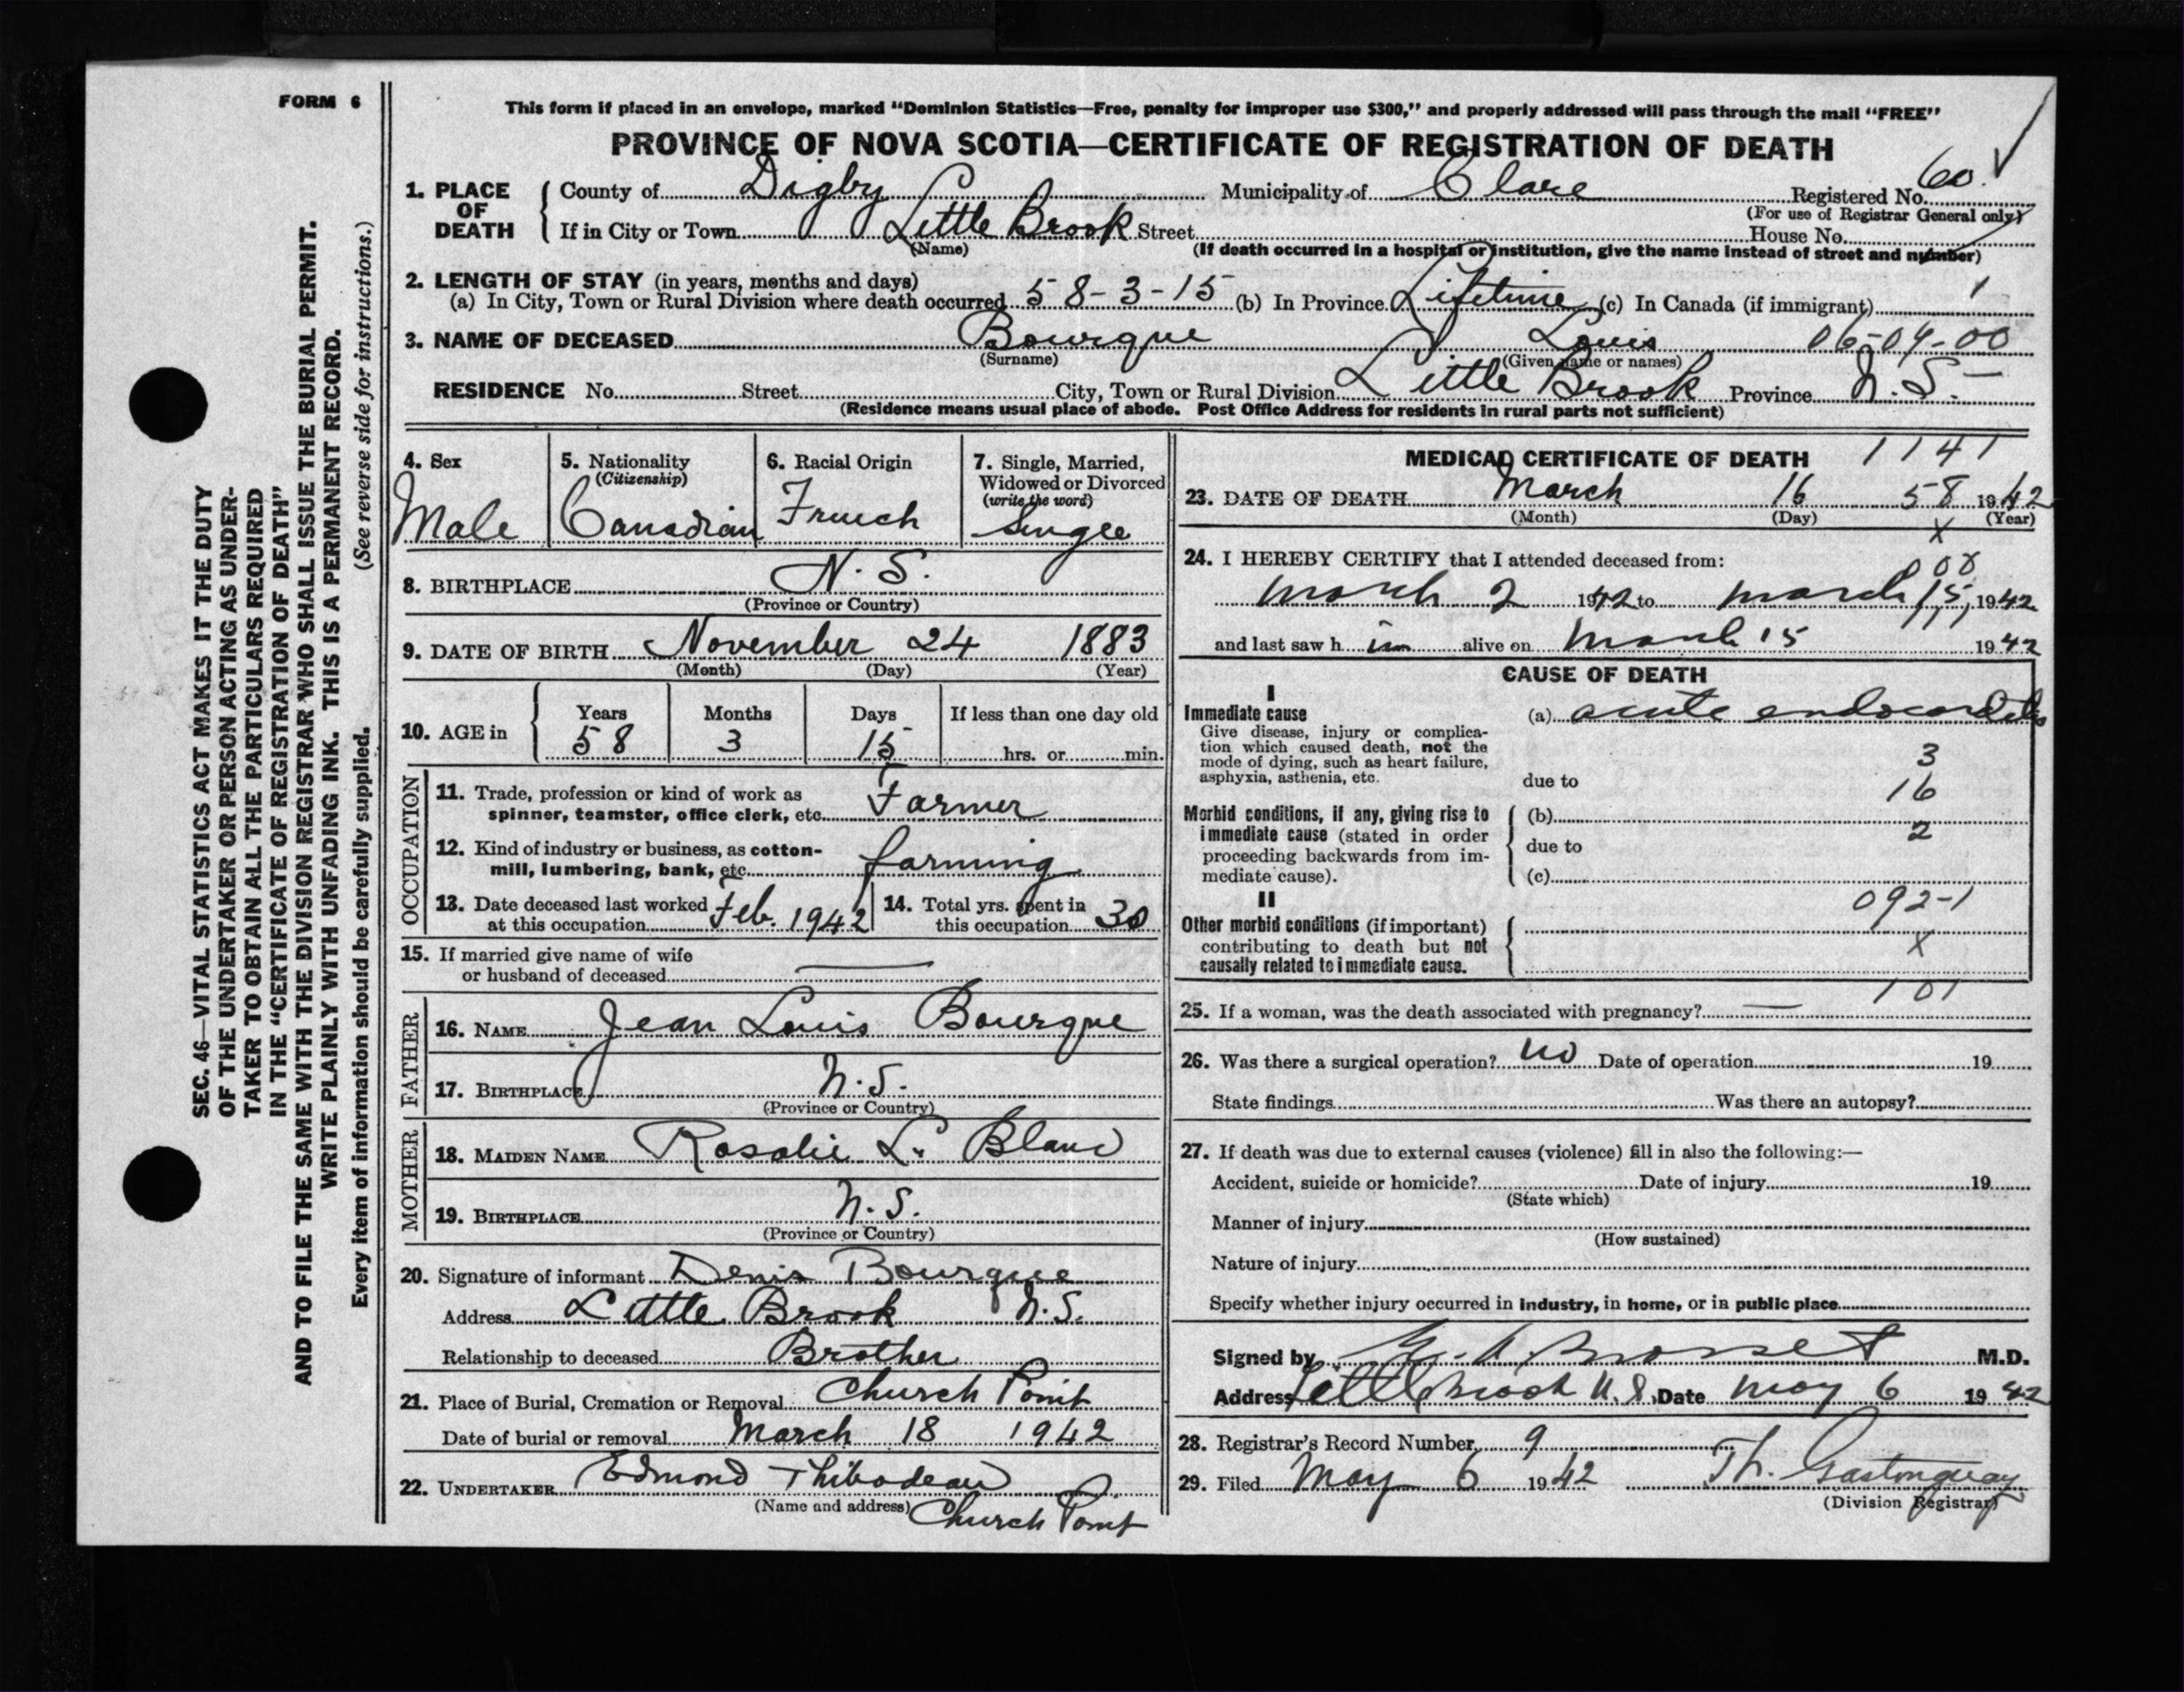 FORM 6
This form if placed in an envelope, marked “Dominion Statistics—Free, penalty for improper use $300,” and properly addressed will pass through the mail “FREE”
PROVINCE OF NOVA SCOTIA—CERTIFICATE OF REGISTRATION OF DEATH
1. PLACE OF DEATH
County of Digby Municipality of Clare Registered No. 60
(For use of Registrar General only)
If in City or Town Little Brook Street House No.
(Name) (If death occurred in a hospital or institution, give the name instead of street and number)
2. LENGTH OF STAY (in years, months and days)
(a) In City, Town or Rural Division where death occurred 58-3-15 (b) In Province Lifetime (c) In Canada (if immigrant)
3. NAME OF DECEASED Bourque Louis 06-04-00
(Surname) (Given name or names)
RESIDENCE No. Street City, Town or Rural Division Little Brook Province N.S.
(Residence means usual place of abode. Post Office Address for residents in rural parts not sufficient)
4. Sex
Male
5. Nationality
(Citizenship)
Canadian
6. Racial Origin
French
7. Single, Married,
Widowed or Divorced
(write the word)
Single
8. BIRTHPLACE N.S.
(Province or Country)
9. DATE OF BIRTH November 24 1883
(Month) (Day) (Year)
10. AGE in
Years Months Days If less than one day old
58 3 15 hrs. or min.
OCCUPATION
11. Trade, profession or kind of work as
spinner, teamster, office clerk, etc. Farmer
12. Kind of industry or business, as cotton-
mill, lumbering, bank, etc. farming
13. Date deceased last worked
at this occupation Feb. 1942
14. Total yrs. spent in
this occupation 30
15. If married give name of wife
or husband of deceased —
FATHER
16. NAME Jean Louis Bourque
17. BIRTHPLACE N.S.
(Province or Country)
MOTHER
18. MAIDEN NAME Rosalie Le Blanc
19. BIRTHPLACE N.S.
(Province or Country)
20. Signature of informant Denis Bourque
Address Little Brook N.S.
Relationship to deceased Brother
21. Place of Burial, Cremation or Removal Church Point
Date of burial or removal March 18 1942
22. UNDERTAKER Edmond Thibodeau
(Name and address) Church Point
MEDICAL CERTIFICATE OF DEATH 1141
23. DATE OF DEATH March 16 58 1942
(Month) (Day) (Year)
X
24. I HEREBY CERTIFY that I attended deceased from:
008
March 2 1942 to March 15, 1942
111
and last saw h im alive on March 15 1942
CAUSE OF DEATH
I
Immediate cause
Give disease, injury or complica-
tion which caused death, not the
mode of dying, such as heart failure,
asphyxia, asthenia, etc.
(a) acute endocarditis
3
due to
16
Morbid conditions, if any, giving rise to
immediate cause (stated in order
proceeding backwards from im-
mediate cause).
(b)
2
due to
(c)
092-1
II
Other morbid conditions (if important)
contributing to death but not
causally related to immediate cause.
X
101
25. If a woman, was the death associated with pregnancy? —
26. Was there a surgical operation? no Date of operation 19
State findings Was there an autopsy?
27. If death was due to external causes (violence) fill in also the following:—
Accident, suicide or homicide? Date of injury 19
(State which)
Manner of injury
(How sustained)
Nature of injury
Specify whether injury occurred in industry, in home, or in public place
Signed by M.D.
Address Little Brook N.S. Date May 6 1942
28. Registrar's Record Number 9
29. Filed May 6 1942 Th. Gastonguay
(Division Registrar)
SEC. 46—VITAL STATISTICS ACT MAKES IT THE DUTY
OF THE UNDERTAKER OR PERSON ACTING AS UNDER-
TAKER TO OBTAIN ALL THE PARTICULARS REQUIRED
IN THE “CERTIFICATE OF REGISTRATION OF DEATH”
AND TO FILE THE SAME WITH THE DIVISION REGISTRAR WHO SHALL ISSUE THE BURIAL PERMIT.
WRITE PLAINLY WITH UNFADING INK. THIS IS A PERMANENT RECORD.
Every item of information should be carefully supplied. (See reverse side for instructions.)